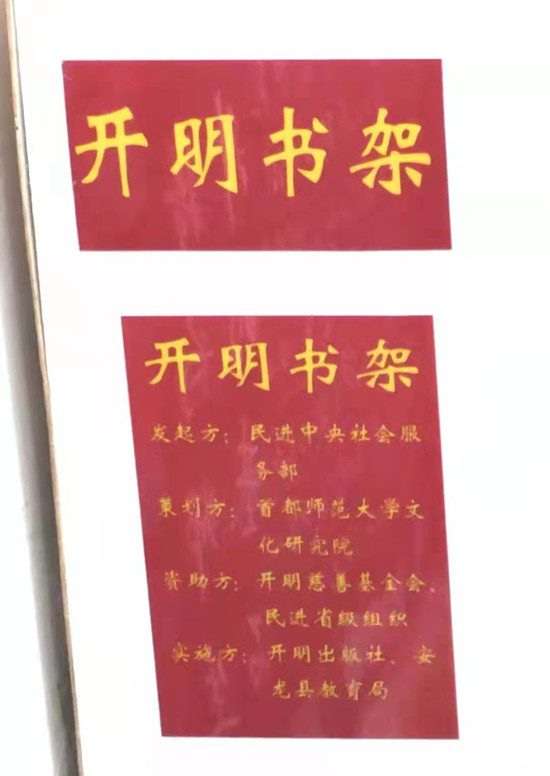 开明书架
开明书架
发起方：民进中央社会服
务部
策划方：首都师范大学文
化研究院
资助方：开明慈善基金会、
民进省级组织
实施方：开明出版社、安
龙县教育局